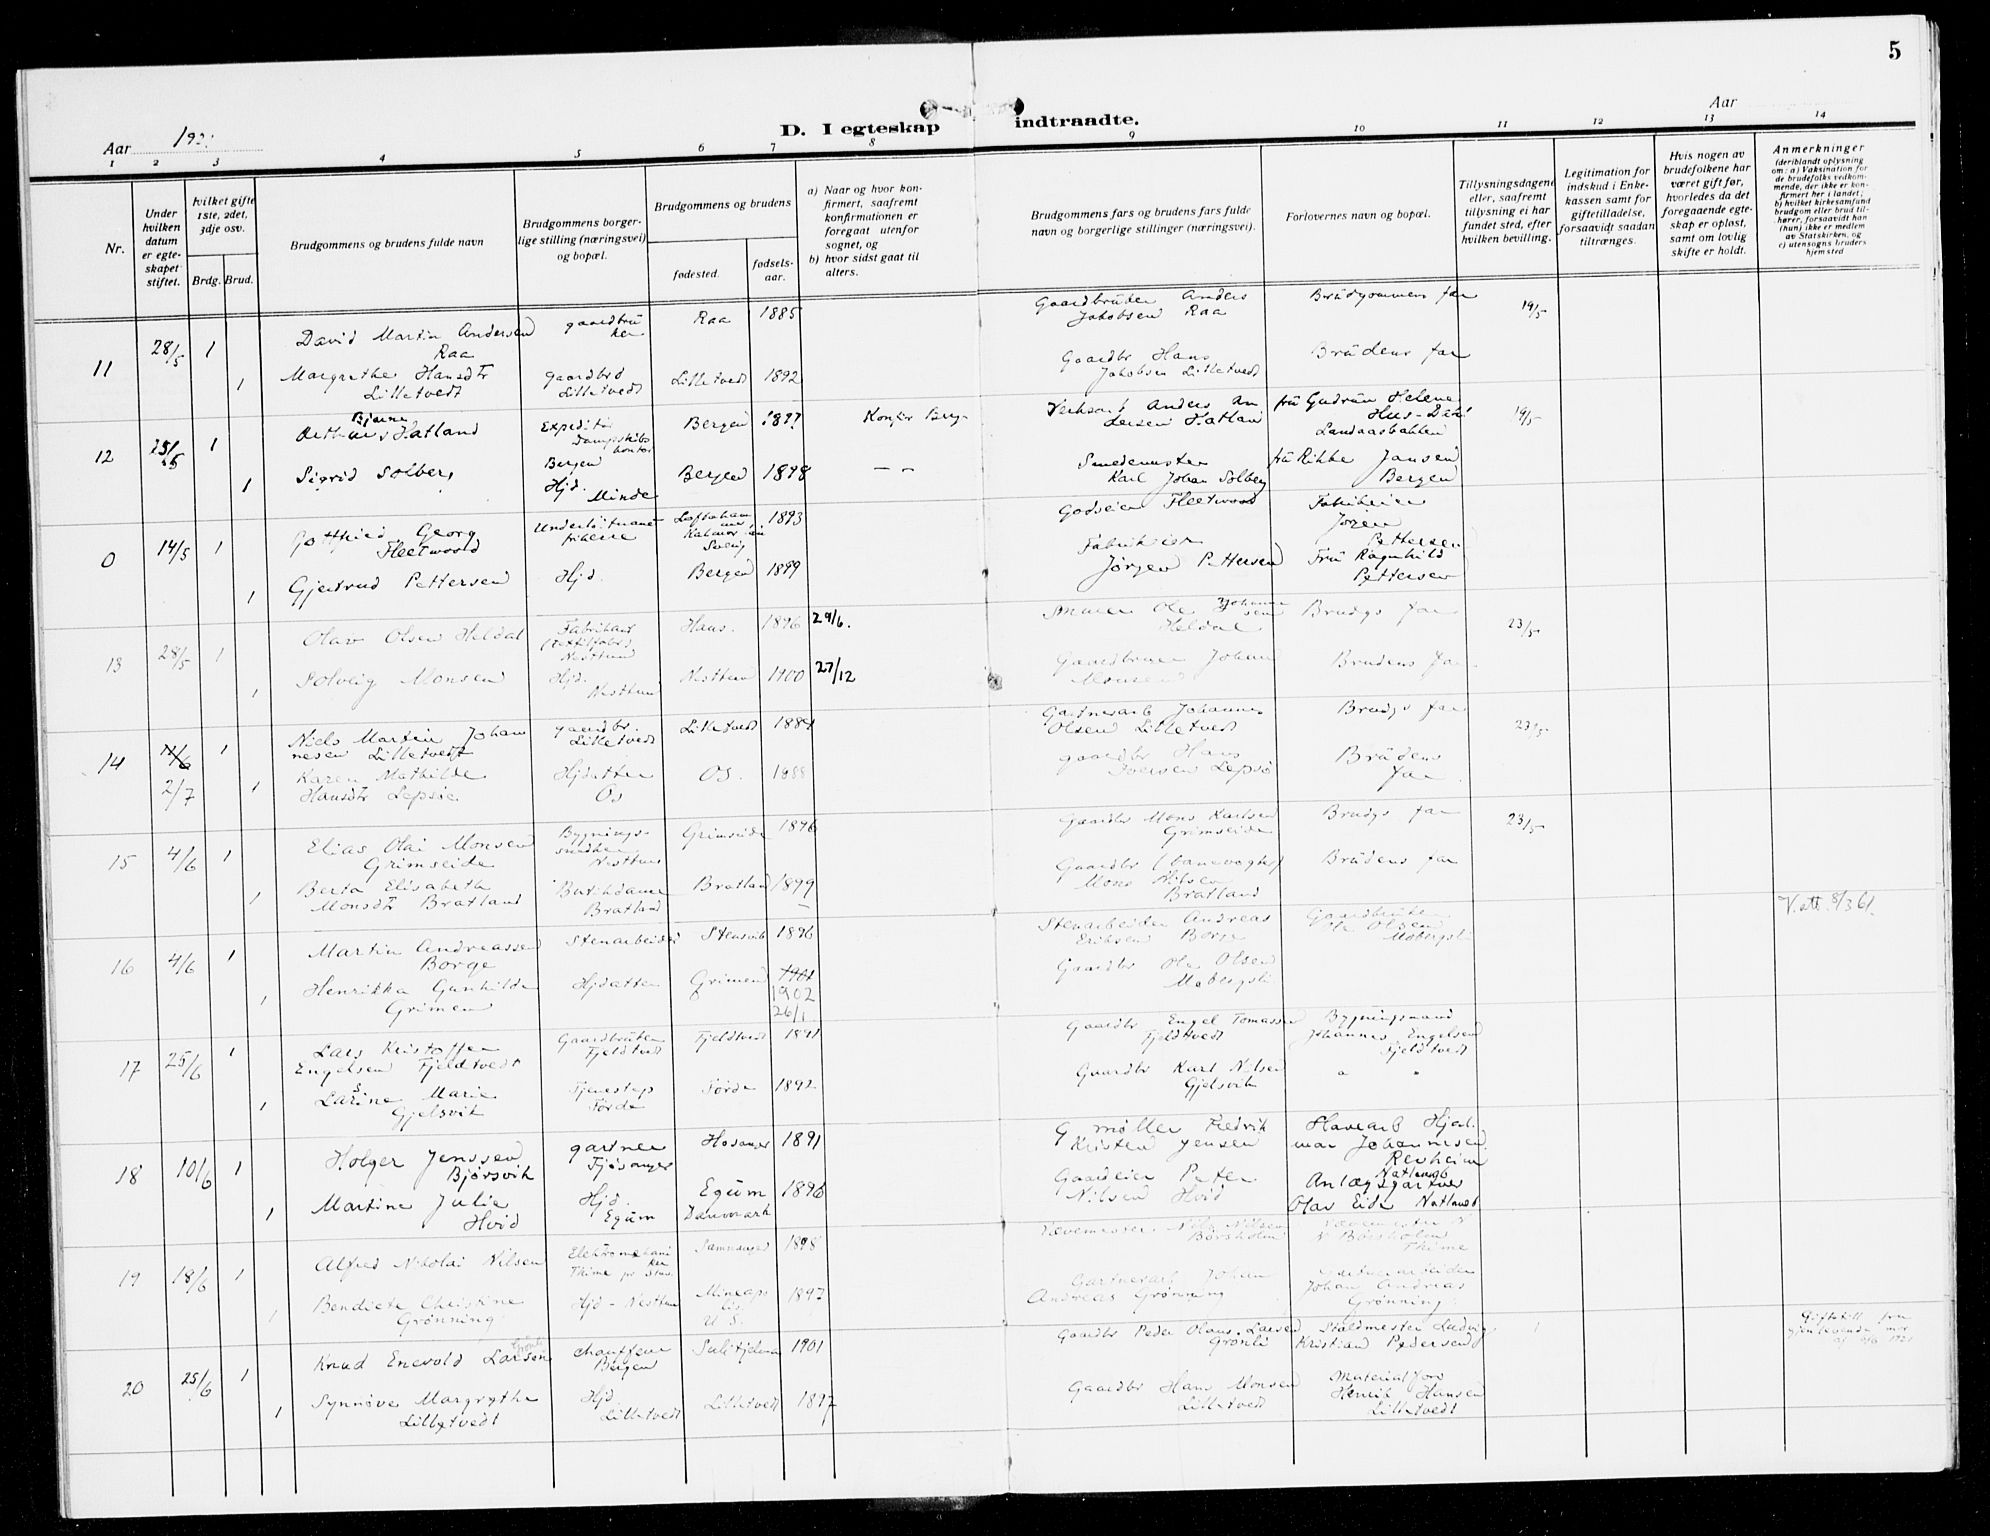 5
Aar 192
D. I egteskap indtraadte.
Aar
1 2 3 4 5 6 7 8 9 10 11 12 13 14
Nr.
Under hvilken datum er egteskapet stiftet.
hvilket gifte 1ste, 2det, 3dje osv.
Brdg. Brud.
Brudgommens og brudens fulde navn
Brudgommens borgerlige stilling (næringsvei) og bopæl.
Brudgommens og brudens
fødested.
fødselsaar.
a) Naar og hvor konfirmert, saafremt konfirmationen er foregaat utenfor sognet, og
b) hvor sidst gaat til alters.
Brudgommens fars og brudens fars fulde navn og borgerlige stillinger (næringsvei).
Forlovernes navn og bopæl.
Tillysningsdagene eller, saafremt tillysning ei har fundet sted, efter hvilken bevilling.
Legitimation for indskud i Enkekassen samt for giftetilladelse, forsaavidt saadan tiltrænges.
Hvis nogen av brudefolkene har været gift før, hvorledes da det foregaaende egteskap er opløst, samt om lovlig skifte er holdt.
Anmerkninger
(deriblandt oplysning om: a) Vaksination for de brudefolks vedkommende, der ikke er konfirmert her i landet; b) hvilket kirkesamfund brudgom eller brud tilhører, forsaavidt han (hun) ikke er medlem av Statskirken, og c) utensogns bruders hjemsted
11 28/5 1 David Martin Andersen Raa gaardbruker Raa 1885 Gaardbruker Anders Jakobsen Raa Brudgommens far 19/5
1 Margrethe Hansdtr Lilletvedt gaardbr Lilletvedt Lilletvedt 1892 Gaardbr Hans Jakobsen Lilletvedt Brudens far
12 25/5 1 Bjarne Arthur Hatland Expeditør Dampskibskontor Bergen Bergen Konfir Berge Anders Andersen Hatland fru Gudrun Helene Hus-Dahl Landaasbakken 19/5
1 Sigrid Solberg Hjd. Minde Bergen 1898 — — Smedemester Karl Johan Solberg fru Rikke Jansen Bergen
0 14/5 1 Gottfried Georg Fleetwood Underløitnant friherre Loftahammar, Kalmar län Sverig 1893 Godseier Fleetwood Fabrikeier Jørgen Pettersen
1 Gjertrud Pettersen Hjd. Bergen 1899 Fabrikeier Jørgen Pettersen Fru Ragnhild Pettersen
13 28/5 1 Olav Olsen Heldal Fabrikant Nesttun Haus. 1896 29/6. Ole Johannesen Heldal Brudgs far 23/5
1 Solveig Monsen Hjd. Nesttun Nesttun 1900 27/12 Gaardbruger Johan Monsen Brudens far
14 11/6 2/7 1 Niels Martin Johannesen Lilletvedt gaardbr Lilletvedt Lilletvedt 1884 Gartnerarb Johannes Olsen Lilletvedt Brudgs far 23/5
1 Karen Mathilde Hansdtr Lepsøe Hjdatter Os Os. 1888 gaardbr Hans Iversen Lepsø Brudens far
15 4/6 1 Elias Olai Monsen Grimseide Bygningssnedker Nesttun Grimseide 1896 Gaardbr Mons Karlsen Grimseide Brudgs far 23/5
1 Berta Elisabeth Monsdtr Bratland Butikdame Bratland Bratland 1899 Gaardbr (banevogter) Mons Nilsen Bratland Brudens far
16 4/6 1 Martin Andreassen Borge Stenarbeider Stensvik 1896 Stenarbeider Andreas Eriksen Borge Gaardbruker Ole Olsen Møbergsli V.att. 8/3 61.
1 Henrikka Gunhilde Grimen Hjdatter Grimen 1901 1902 26/1 Gaardbr Ole Olsen Møbergsli
17 25/6 1 Lars Kristoffer Engelsen Fjeldtvedt Gaardbruker Fjeldtvedt Fjeldtvedt 1891 Gaardbr Engel Tomassen Fjeldtvedt Bygningsmand Johannes Engelsen Fjeldtvedt
1 Larine Marie Gjelsvik Tjenestep Førde Førde 1892 Gaardbr Karl Nilsen Gjelsvik " "
18 10/6 1 Holger Jenssen Bjørsvik gartner Fjøsanger Hosanger 1891 G møller Fredrik Kristen Jensen Havearb Hjalmar Johannesen Revheim Natlandsb
1 Martine Julie Hvid Hjd. Egum Egum Danmark 1896 Gaardeier Peter Nilsen Hvid Anlægsgartner Olav Eide Natlandsb
19 18/6 1 Alfred Nikolai Nilsen Elektromekaniker Thime pr Stav. Samnanger 1898 Vævemester Nils Nilsen Børsholm Vævemester N N Børsholm Thime
1 Bendicte Christine Grønning Hjd - Nesttun Mineapolis U.S. 1897 Gartnerarb Johan Andreas Grønning Johan Andreas Grønning
20 25/6 1 Knud Enevold Larsen Grønli chauffeur Bergen Sulitjelma 1901 Gaardbr Peder Olaus Larsen Grønli Staldmester Ludvig Kristian Pedersen
1 Synnøve Margrethe Lilletvedt Hjd. Lilletvedt Lilletvedt 1897 Gaardbr Hans Monsen Lilletvedt Materialforv Henrik Hansen Lilletvedt